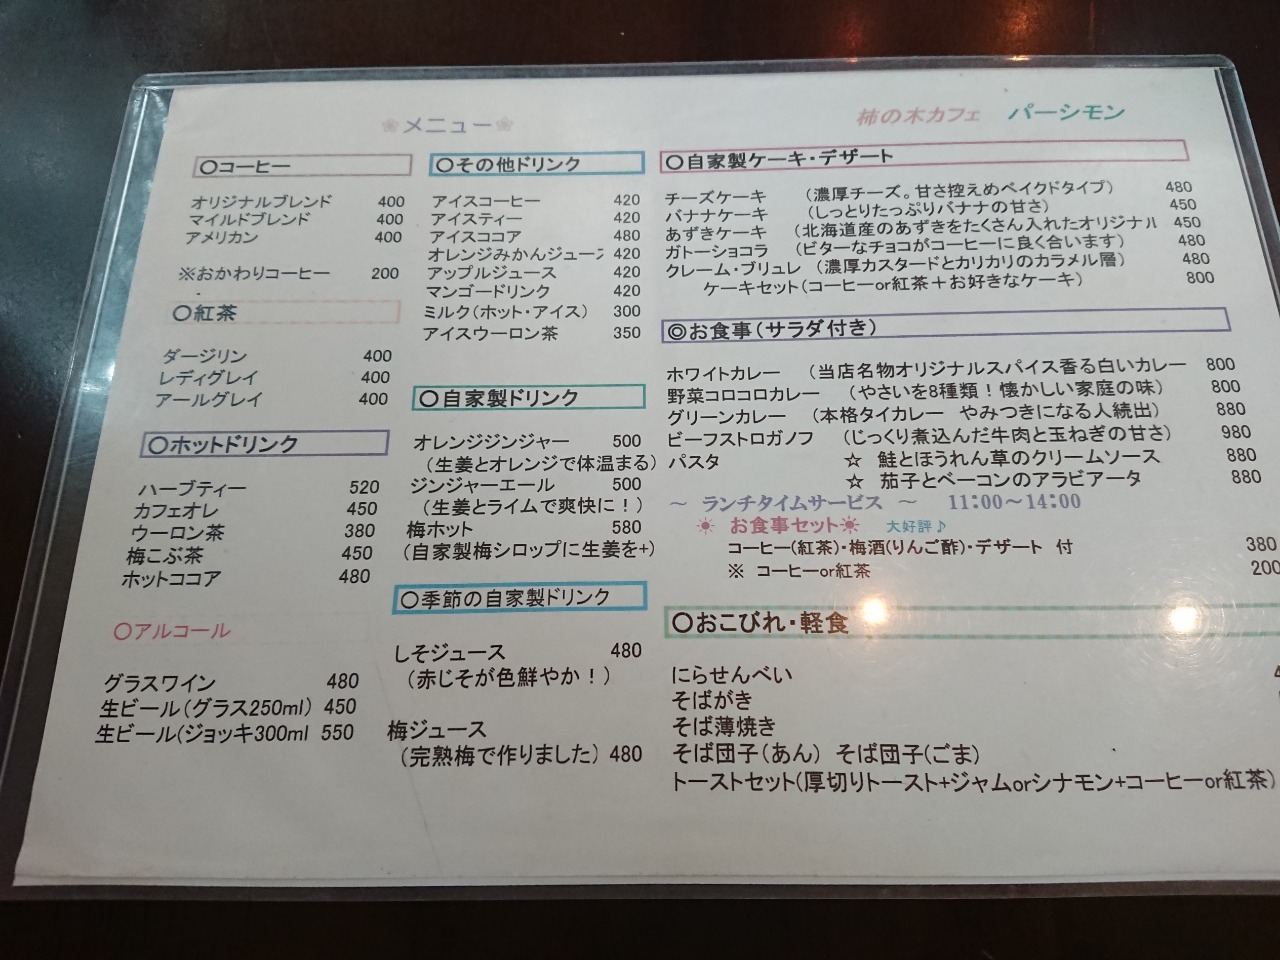 ❀メニュー❀
柿の木カフェ パーシモン
〇コーヒー
オリジナルブレンド 400
マイルドブレンド 400
アメリカン 400
※おかわりコーヒー 200
〇紅茶
ダージリン 400
レディグレイ 400
アールグレイ 400
〇ホットドリンク
ハーブティー 520
カフェオレ 450
ウーロン茶 380
梅こぶ茶 450
ホットココア 480
〇アルコール
グラスワイン 480
生ビール(グラス250ml) 450
生ビール(ジョッキ300ml 550
〇その他ドリンク
アイスコーヒー 420
アイスティー 420
アイスココア 480
オレンジみかんジュース 420
アップルジュース 420
マンゴードリンク 420
ミルク(ホット・アイス) 300
アイスウーロン茶 350
〇自家製ドリンク
オレンジジンジャー 500
(生姜とオレンジで体温まる)
ジンジャーエール 500
(生姜とライムで爽快に！)
梅ホット 580
(自家製梅シロップに生姜を+)
〇季節の自家製ドリンク
しそジュース 480
(赤じそが色鮮やか！)
梅ジュース
(完熟梅で作りました) 480
〇自家製ケーキ・デザート
チーズケーキ (濃厚チーズ。甘さ控えめベイクドタイプ) 480
バナナケーキ (しっとりたっぷりバナナの甘さ) 450
あずきケーキ (北海道産のあずきをたくさん入れたオリジナル 450
ガトーショコラ (ビターなチョコがコーヒーに良く合います) 480
クレーム・ブリュレ (濃厚カスタードとカリカリのカラメル層) 480
ケーキセット(コーヒーor紅茶＋お好きなケーキ) 800
◎お食事(サラダ付き)
ホワイトカレー (当店名物オリジナルスパイス香る白いカレー 800
野菜コロコロカレー (やさいを8種類！懐かしい家庭の味) 800
グリーンカレー (本格タイカレー やみつきになる人続出) 880
ビーフストロガノフ (じっくり煮込んだ牛肉と玉ねぎの甘さ) 980
パスタ ☆ 鮭とほうれん草のクリームソース 880
☆ 茄子とベーコンのアラビアータ 880
～ ランチタイムサービス ～ 11:00～14:00
☀ お食事セット☀ 大好評♪
コーヒー(紅茶)・梅酒(りんご酢)・デザート 付 380
※ コーヒーor紅茶 200
〇おこびれ・軽食
にらせんべい
そばがき
そば薄焼き
そば団子(あん) そば団子(ごま)
トーストセット(厚切りトースト+ジャムorシナモン+コーヒーor紅茶)